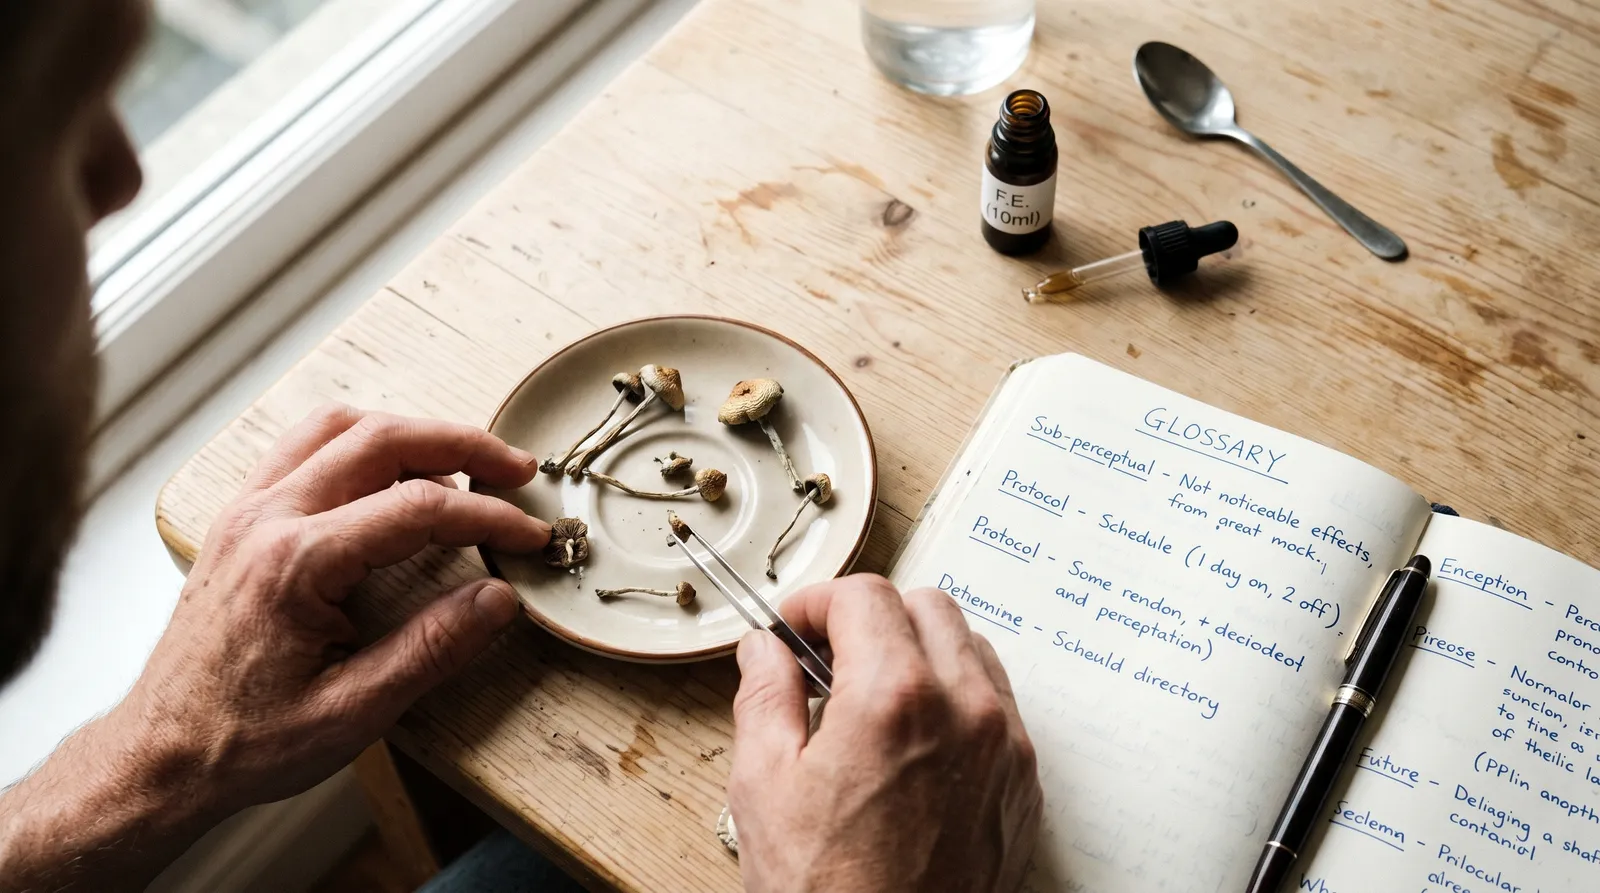 F.E.
(10ml)
GLOSSARY
Sub-perceptual - Not noticeable effects,
from great mock.,
Protocol - Schedule (1 day on, 2 off).
Protocol - Some rendon, + deciodeot
and perceptation)
Dehemine - Scheuld directory
Enception - Perc
prono
contro
Pireose - Normalor
sunclon, isr
to tine as
of theilic la
(PPlin anopth
Future - Deliaging a shaf
contanial
Seclemn - Prilocular
alree
Wh